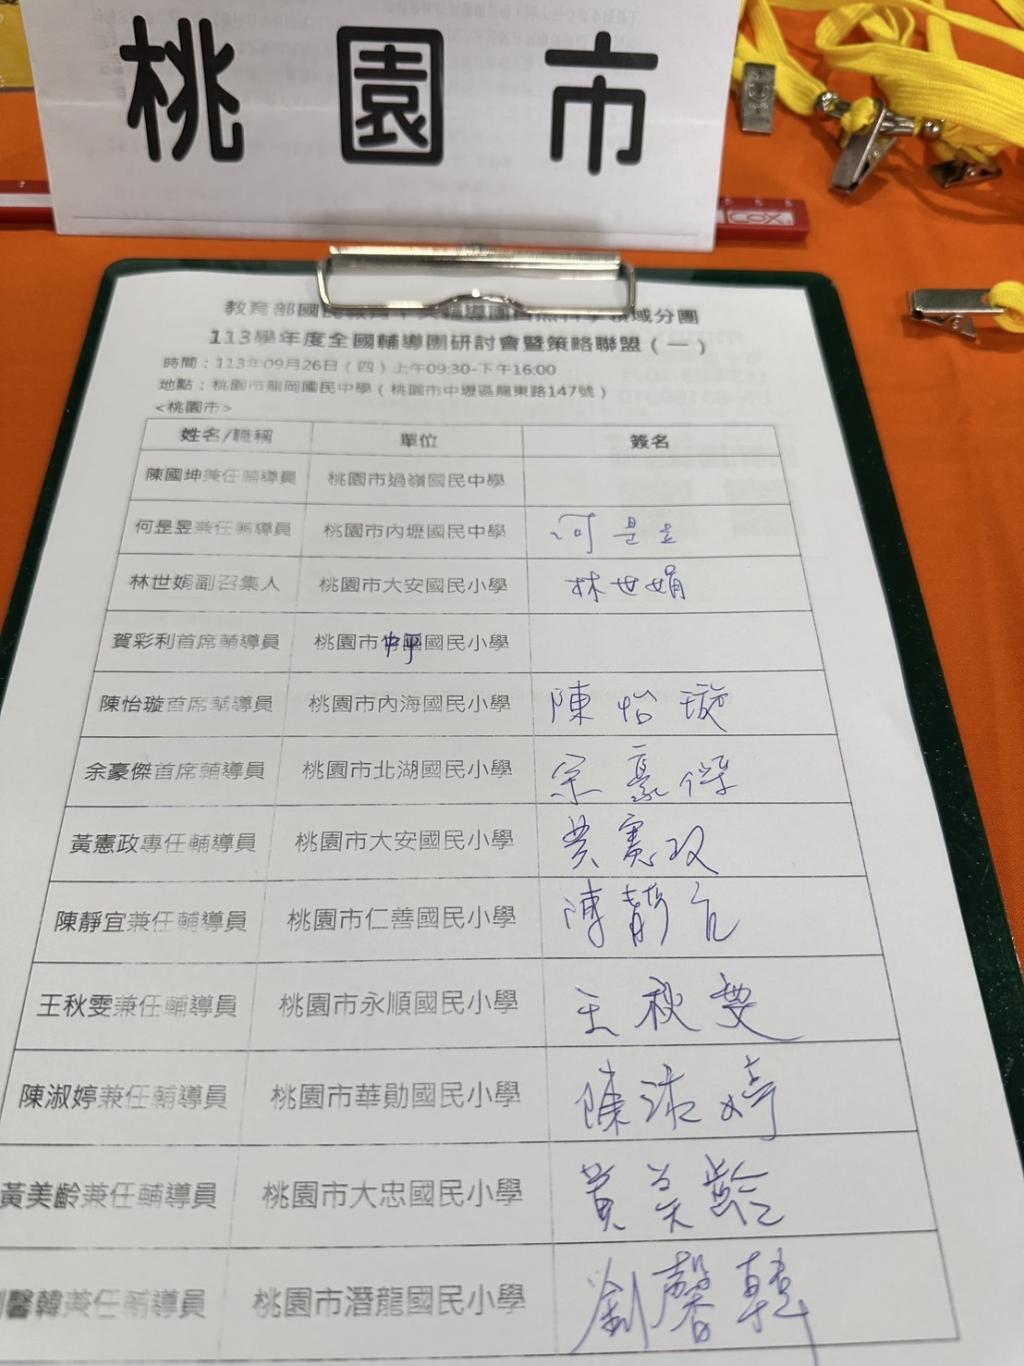 桃園市
教育部國民教育中央輔導團自然科學領域分團
113學年度全國輔導團研討會暨策略聯盟(一)
時間:113年09月26日(四)上午09:30-下午16:00
地點:桃園市龍岡國民中學(桃園市中壢區龍東路147號)
<桃園市>
姓名/職稱 單位 簽名
陳國坤兼任輔導員 桃園市過嶺國民中學
何昰昱兼任輔導員 桃園市內壢國民中學 何是
林世娟副召集人 桃園市大安國民小學 林世娟
賀彩利首席輔導員 桃園市中平國民小學
陳怡璇首席輔導員 桃園市內海國民小學 陳怡璇
余豪傑首席輔導員 桃園市北湖國民小學 余豪傑
黃憲政專任輔導員 桃園市大安國民小學 黃憲政
陳靜宜兼任輔導員 桃園市仁善國民小學 陳靜宜
王秋雯兼任輔導員 桃園市永順國民小學 王秋雯
陳淑婷兼任輔導員 桃園市華勛國民小學 陳淑婷
黃美齡兼任輔導員 桃園市大忠國民小學 黃美齡
劉馨韓兼任輔導員 桃園市潛龍國民小學 劉馨韓